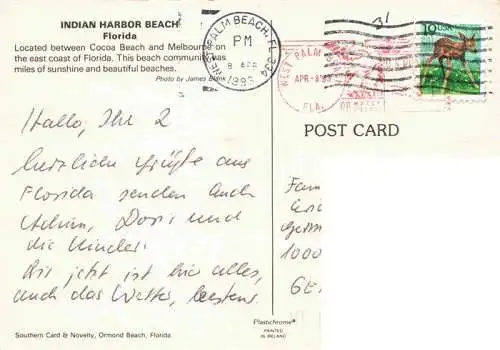 INDIAN HARBOR BEACH
Florida
Located between Cocoa Beach and Melbourne on
the east coast of Florida. This beach community was
miles of sunshine and beautiful beaches.
Photo by James Blank
WEST PALM BEACH, FL 334
PM
8 APR
WEST PALM
APR -8
FLA.
19 USA
POST CARD
Hallo, Ihr 2
herzliche Grüße aus
Florida senden Euch
Doris und
die Kinder.
Bis jetzt ist hier alles,
auch das Wetter, bestens.
Fam
1000
GE
Plastichrome®
PRINTED
IN IRELAND
Southern Card & Novelty, Ormond Beach, Florida